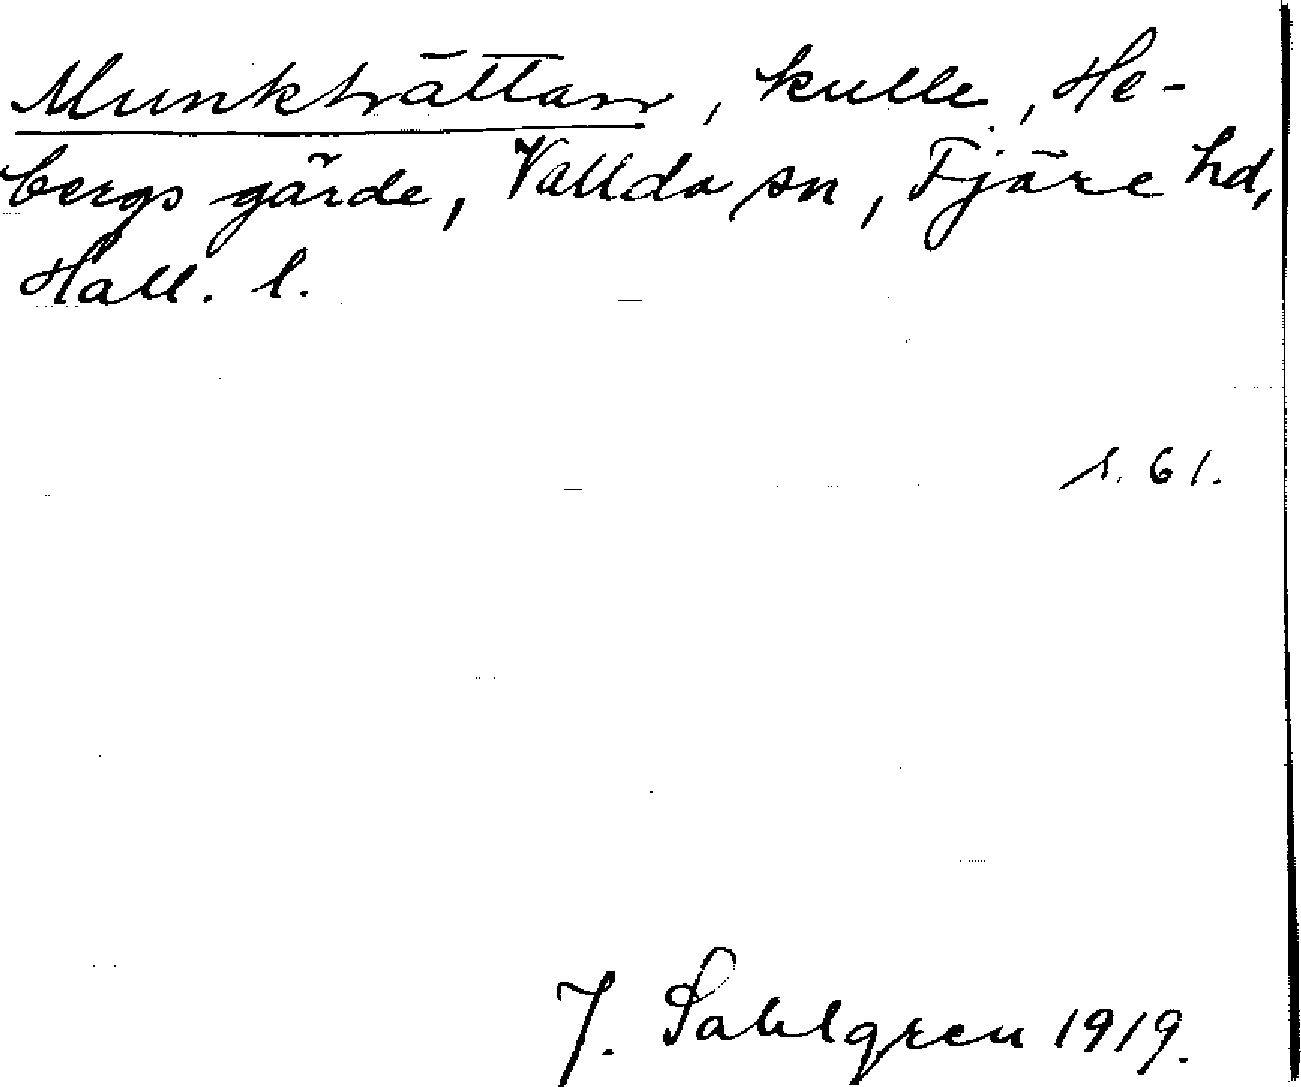 Munkhättan, kulle, He-
bergs gärde, Vallda sn, Fjäre hd,
Hall. l.
s. 61.
J. Sahlgren 1919.